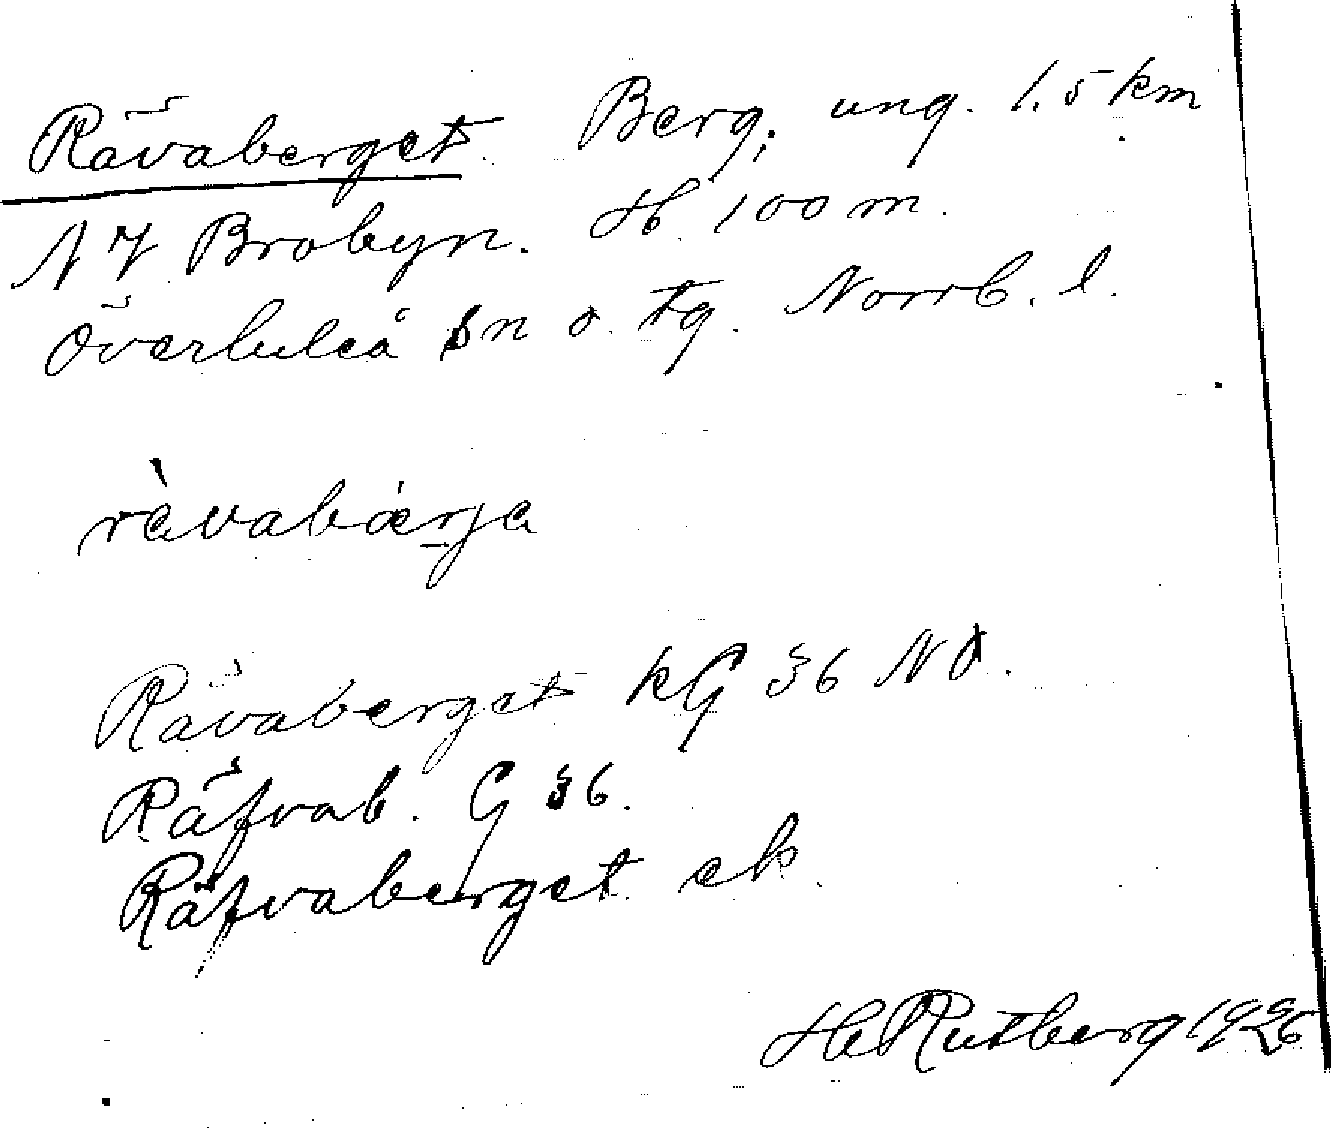 Rävaberget. Berg, ung. 1.5 km
NV Brobyn. H. 100 m.
Överluleå sn o. tg. Norrb. l.
rävabärja
Rävaberget kG 36 NO.
Räfvab. G 36.
Räfvaberget ek.
H Rutberg 1926